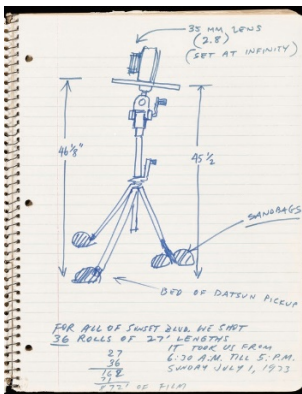 35 MM LENS
(2.8)
(SET AT INFINITY)
46 1/8"
45 1/2
SANDBAGS
BED OF DATSUN PICKUP
FOR ALL OF SUNSET BLVD WE SHOT
36 ROLLS OF 27' LENGTHS
IT TOOK US FROM
6:30 A.M. TILL 5: P.M.
SUNDAY JULY 1, 1973
27
36
162
' OF FILM